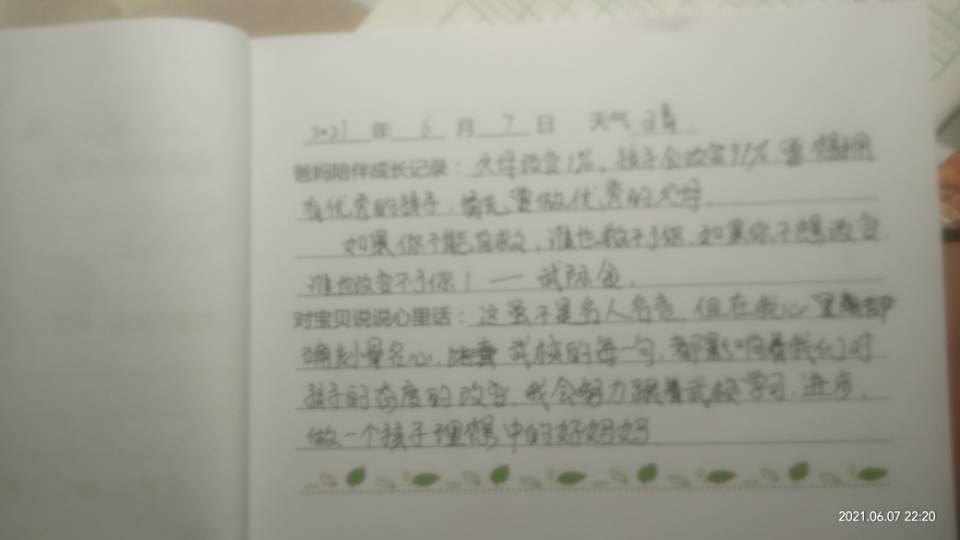 2021年 6 月 7 日 天气 晴
爸妈陪伴成长记录：父母改变1%，孩子会改变99% 要想拥
有优秀的孩子，首先要做优秀的父母。
如果你不能自救，谁也救不了你 如果你不想改变
谁也改变不了你！—— 武际金。
对宝贝说说心里话：这虽不是名人名言 但在我心里
的每一句，都影响着我们对
孩子的态度的改变，我会努力跟着武校学习，进步，
做一个孩子理想中的好妈妈
2021.06.07 22:20